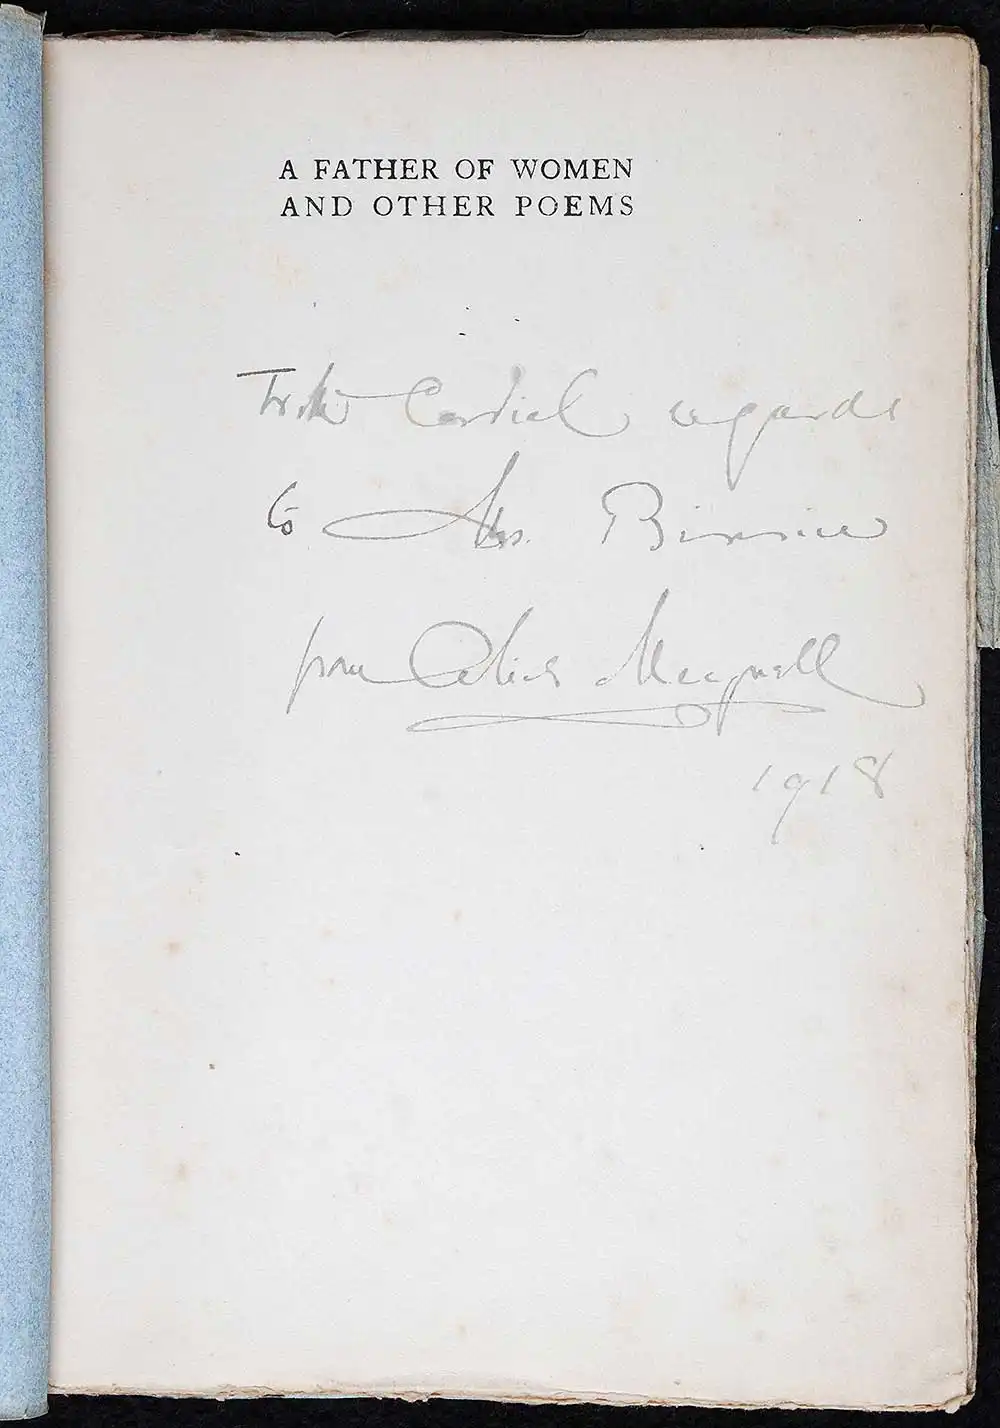 A FATHER OF WOMEN
AND OTHER POEMS
With Cordial regards
to Mrs.
from Alice Meynell
1918